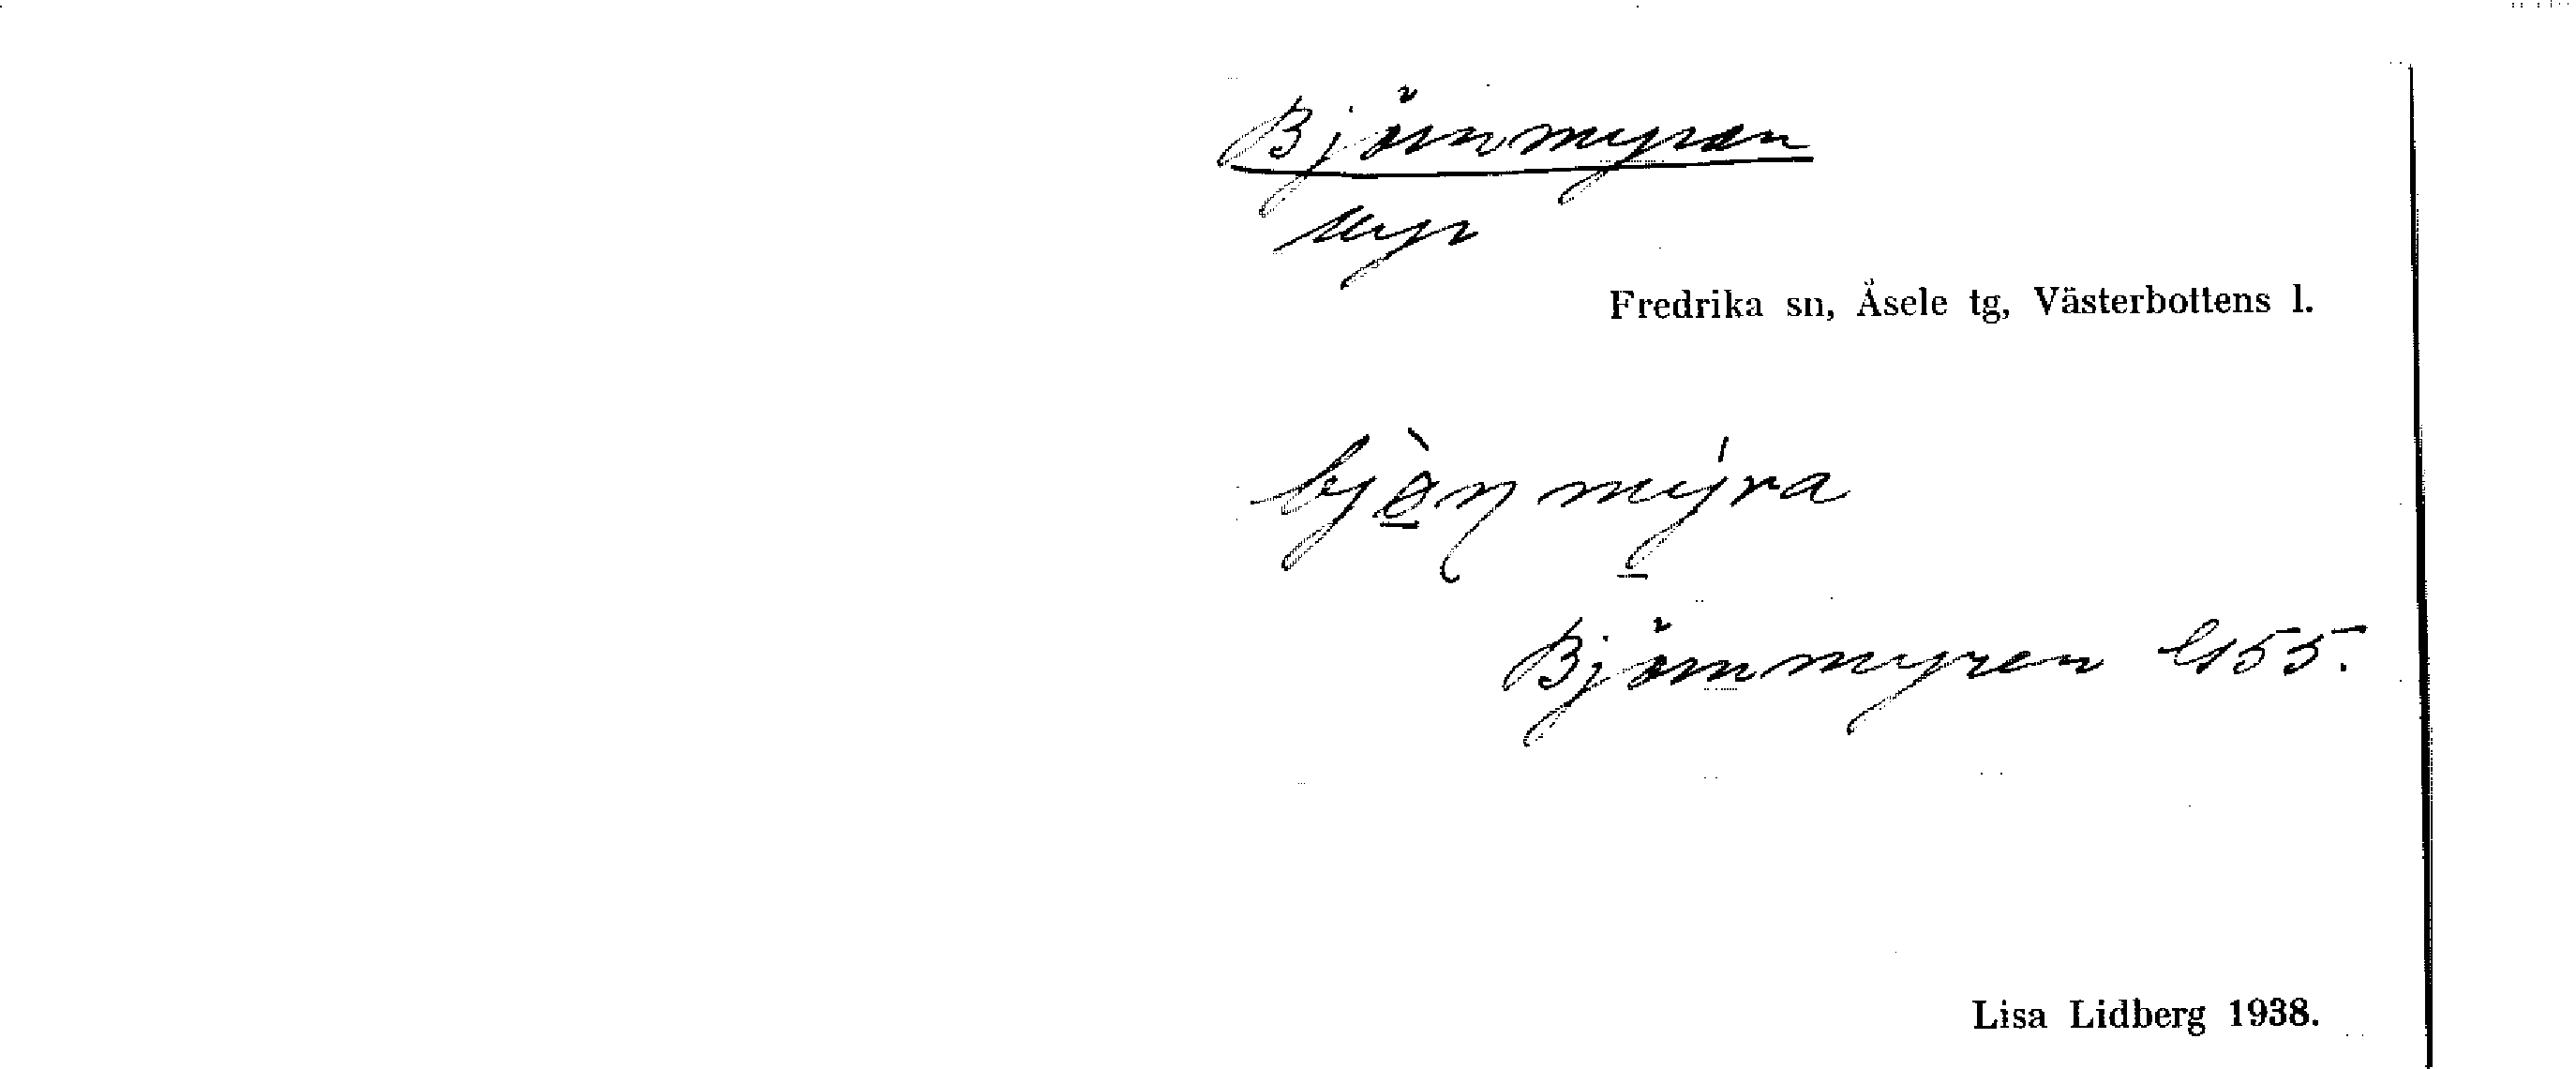 Björnmyran
Myr
Fredrika sn, Åsele tg, Västerbottens l.
bjə̀ṇmýra
Björnmyren G155.
Lisa Lidberg 1938.